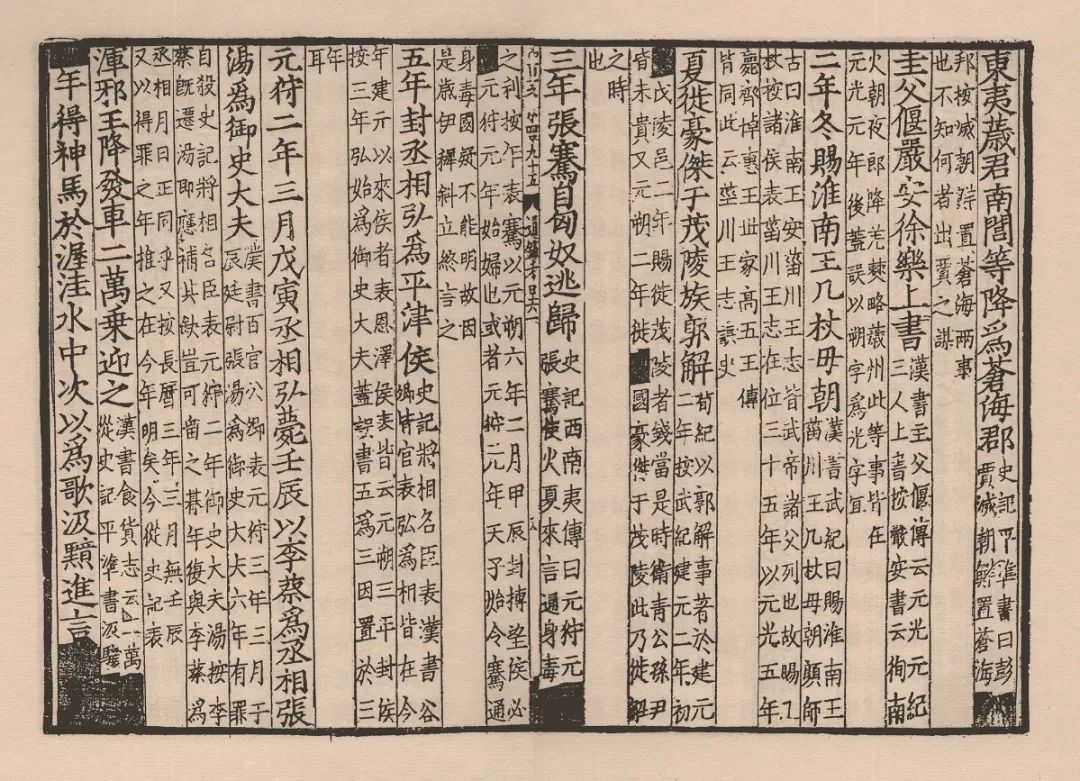 東夷薉君南閭等降爲蒼海郡
史記平準書曰彭
賈滅朝鮮置蒼海
邦按滅朝鮮置蒼海兩事
也不知何者出賈之謀
圭父偃嚴安徐樂上書
漢書主父偃傳云元光元紀
三人上書按嚴安書云徇南
火朝夜郎降羌僰略薉州此等事皆在
元光元年後蓋誤以朔字爲光字冝
二年冬賜淮南王几杖毋朝
漢書武紀曰賜淮南王
菑川王几杖毋朝顔師
古曰淮南王安菑川王志皆武帝諸父列也故賜几
杖按諸侯表菑川王志在位三十五年以元光五年
薨齊悼惠王世家高五王傳
皆同此云菑川王志誤史
夏徙豪傑于茂陵族郭解
荀紀以郭解事著於建元
二年按武紀建元二年初
戊陵邑二年賜徙茂陵者錢當是時衛青公孫尹
皆未貴又元朔二年徙國豪傑于茂陵此乃徙解
之時
也
三年張騫自匈奴逃歸
史記西南夷傳曰元狩元
張騫使大夏來言通身毒
之利按年表騫以元朔六年二月甲辰封博望侯必
元狩元年始歸也或者元狩元年天子始令騫通
身毒國疑不能明故因
是歲伊穉斜立終言之
五年封丞相弘爲平津侯
史記將相名臣表漢書公
卿百官表弘爲相皆在今
年建元以來侯者表恩澤侯表皆云元朔三年封侯
按三年弘始爲御史大夫蓋誤書五爲三因置於三
年
耳
元狩二年三月戊寅丞相弘薨壬辰以李蔡爲丞相張
湯爲御史大夫
漢書百官公卿表元狩三年三月于
辰廷尉張湯爲御史大夫六年有罪
自殺史記將相名臣表元狩二年御史大夫湯按李
蔡旣遷湯即應補其缺豈可留之朞年復與李蔡爲
丞相月日正同乎又按長曆三年三月無壬辰
又以得罪之年推之在今年明矣今從史記表
渾邪王降發車二萬乘迎之
漢書食貨志云二萬
從史記平準書汲黯
年得神馬於渥洼水中次以爲歌汲黯進言